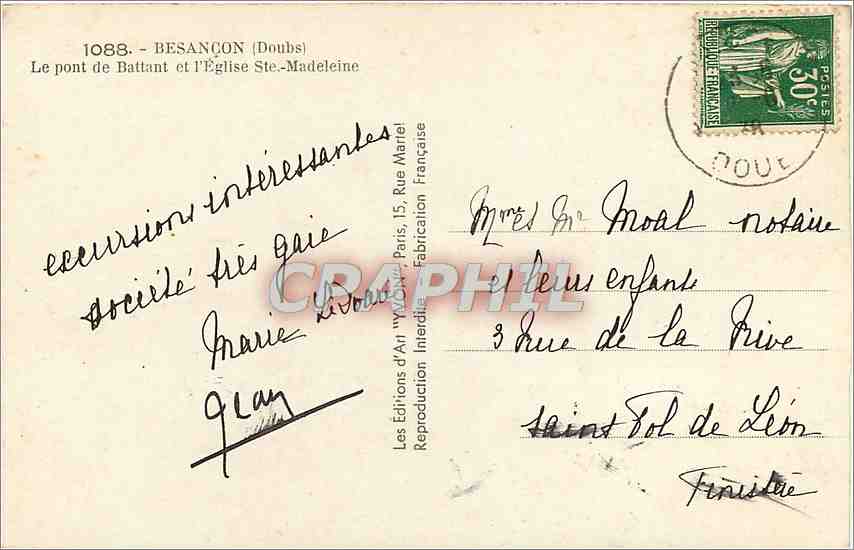 1088. - BESANÇON (Doubs)
Le pont de Battant et l'Église Ste.-Madeleine
excursions intéressantes
société très gaie
Marie
Les Editions d'Art "YVON", Paris, 15, Rue Martel
Reproduction Interdite Fabrication Française
CRAPHIL
RÉPUBLIQUE FRANÇAISE
POSTES
30c
DOUB
Mme et Mr Moal notaire
et leurs enfants
3 Rue de la Rive
Saint Pol de Léon
Finistère